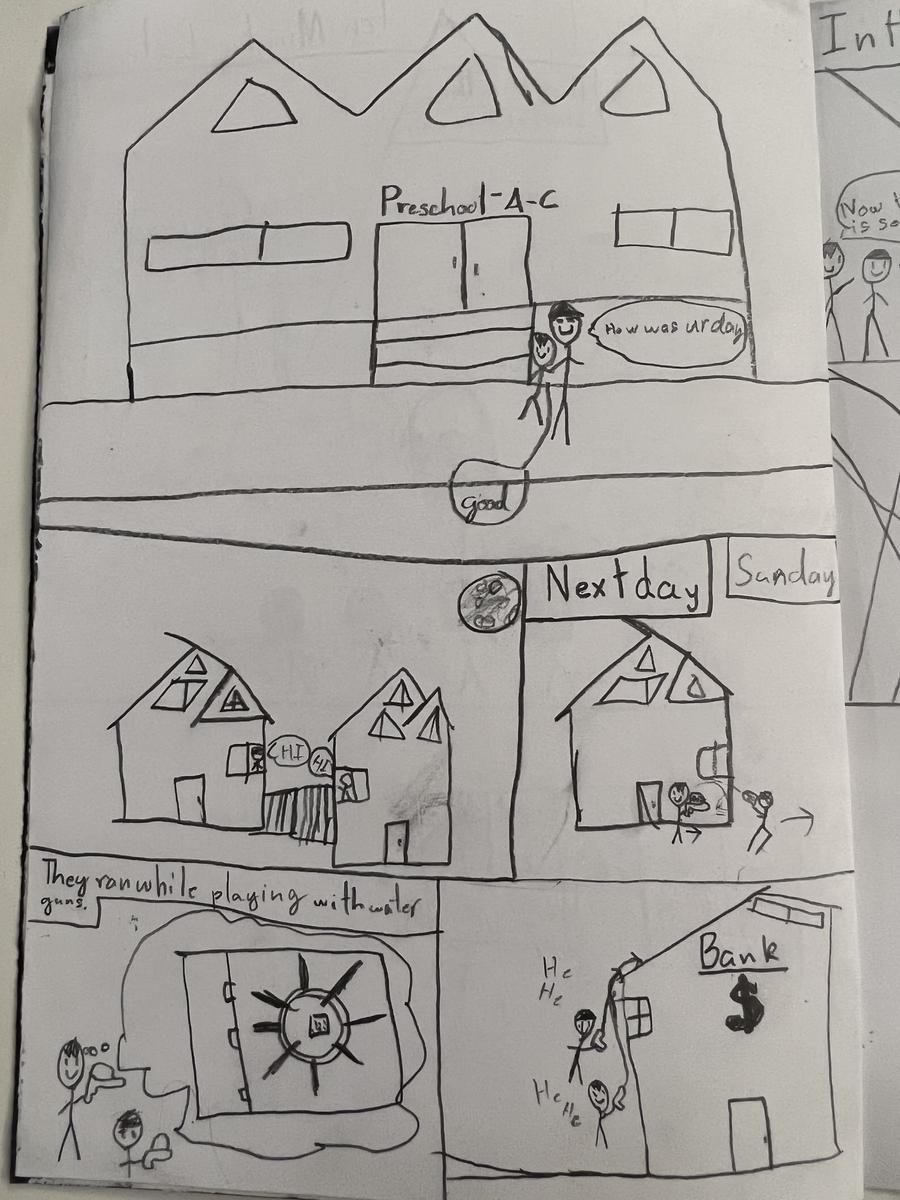 Preschool-A-C
How was ur day
Good
Next day
Sunday
HI
HI
They ran while playing with water
guns.
He
He
He
He
Bank
$
In
Now
is so